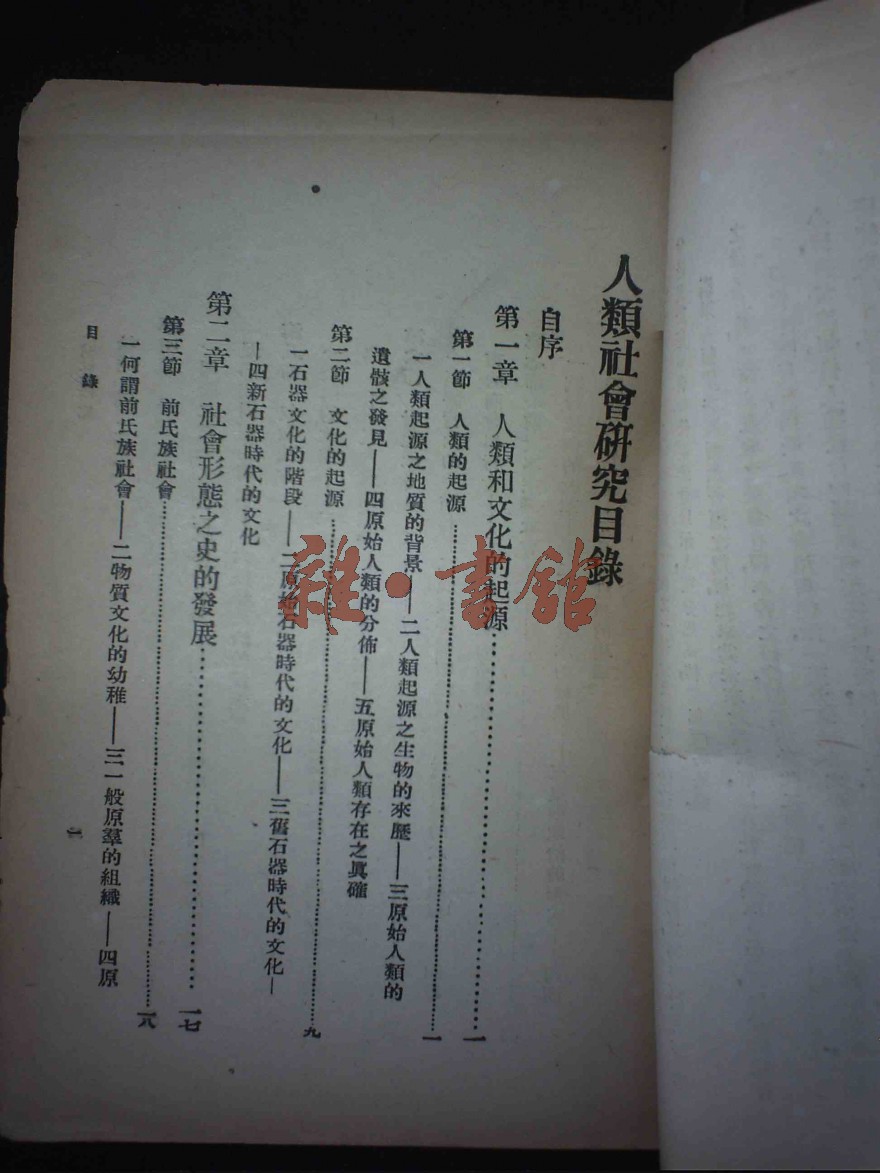 人類社會硏究目錄
自序
第一章 人類和文化的起源…………一
第一節 人類的起源…………一
一人類起源之地質的背景——二人類起源之生物的來歷——三原始人類的
遺骸之發見——四原始人類的分佈——五原始人類存在之眞確
第二節 文化的起源…………九
一石器文化的階段——二原始石器時代的文化——三舊石器時代的文化—
—四新石器時代的文化
第二章 社會形態之史的發展…………一七
第三節 前氏族社會…………一八
一何謂前氏族社會——二物質文化的幼稚——三一般原羣的組織——四原
目錄
一
雜·書館